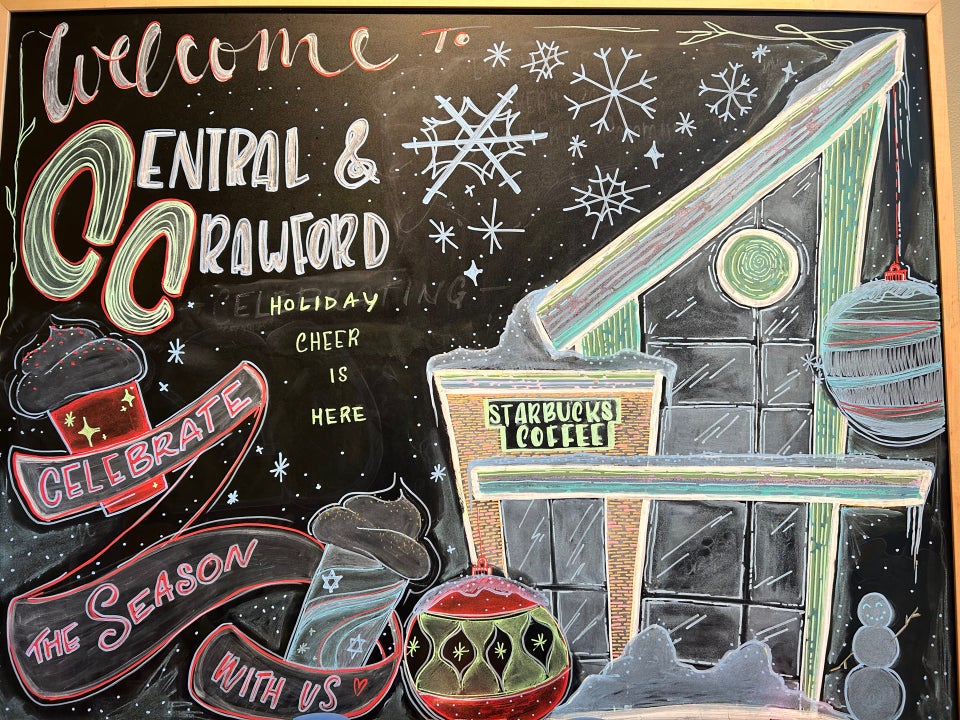 Welcome TO
CENTRAL &
CRAWFORD
CELEBRATING
HOLIDAY
CHEER
IS
HERE
STARBUCKS
COFFEE
CELEBRATE
THE SEASON
WITH US